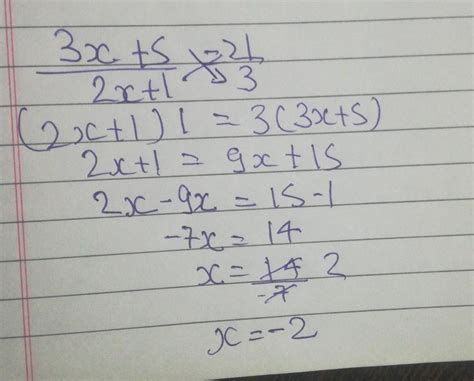 3x+5 = 21
2x+1 3
(2x+1) 1 = 3(3x+5)
2x+1 = 9x+15
2x-9x = 15-1
-7x = 14
x = 14 2
-7
x = -2